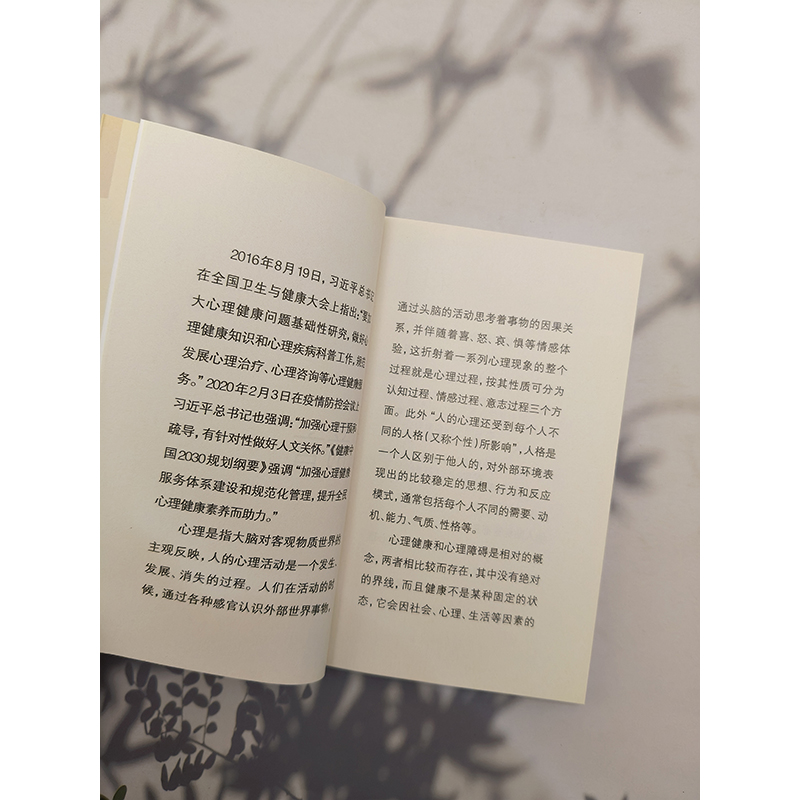 2016年8月19日，习近平总书记
在全国卫生与健康大会上指出：“要加
大心理健康问题基础性研究，做好心
理健康知识和心理疾病科普工作，规范
发展心理治疗、心理咨询等心理健康服
务。”2020年2月3日在疫情防控会议上
习近平总书记也强调：“加强心理干预和
疏导，有针对性做好人文关怀。”《健康中
国2030规划纲要》强调“加强心理健康
服务体系建设和规范化管理，提升全民
心理健康素养而助力。”
心理是指大脑对客观物质世界的
主观反映，人的心理活动是一个发生、
发展、消失的过程。人们在活动的时
候，通过各种感官认识外部世界事物，
通过头脑的活动思考着事物的因果关
系，并伴随着喜、怒、哀、惧等情感体
验，这折射着一系列心理现象的整个
过程就是心理过程，按其性质可分为
认知过程、情感过程、意志过程三个方
面。此外“人的心理还受到每个人不
同的人格（又称个性）所影响”，人格是
一个人区别于他人的，对外部环境表
现出的比较稳定的思想、行为和反应
模式，通常包括每个人不同的需要、动
机、能力、气质、性格等。
心理健康和心理障碍是相对的概
念，两者相比较而存在，其中没有绝对
的界线，而且健康不是某种固定的状
态，它会因社会、心理、生活等因素的